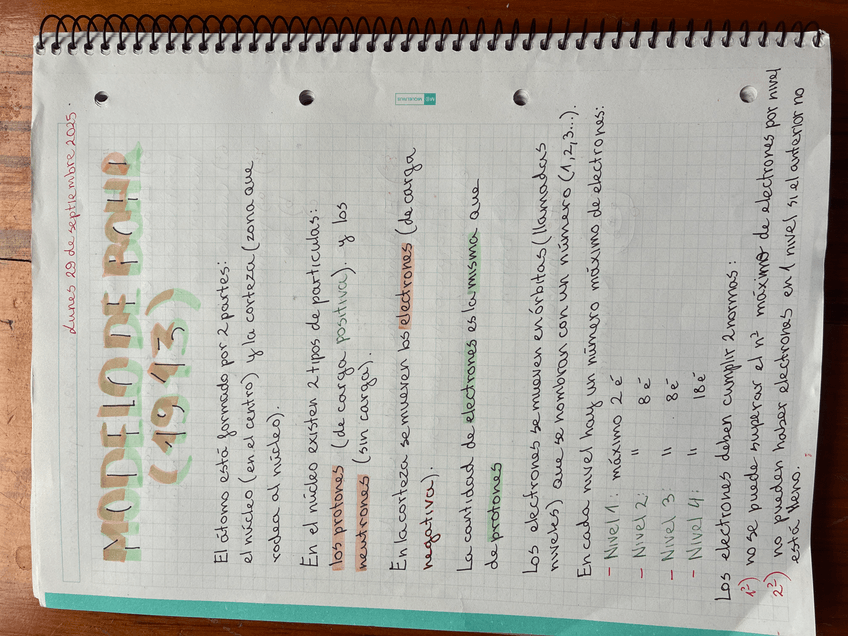 Lunes 29 de septiembre 2025.
MODELO DE BOHR
(1913)
El átomo está formado por 2 partes:
el núcleo (en el centro) y la corteza (zona que
rodea al núcleo).
En el núcleo existen 2 tipos de partículas:
los protones (de carga positiva). y los
neutrones (sin carga).
En la corteza se mueven los electrones (de carga
negativa).
La cantidad de electrones es la misma que
de protones
Los electrones se mueven en órbitas (llamadas
niveles) que se nombran con un número (1,2,3...).
En cada nivel hay un número máximo de electrones:
- Nivel 1: máximo 2 é
- Nivel 2: " 8 é
- Nivel 3: " 8 é
- Nivel 4: " 18 é
Los electrones deben cumplir 2 normas:
1ª) no se puede superar el nº máximo de electrones por nivel
2ª) no pueden haber electrones en 1 nivel si el anterior no
está lleno.